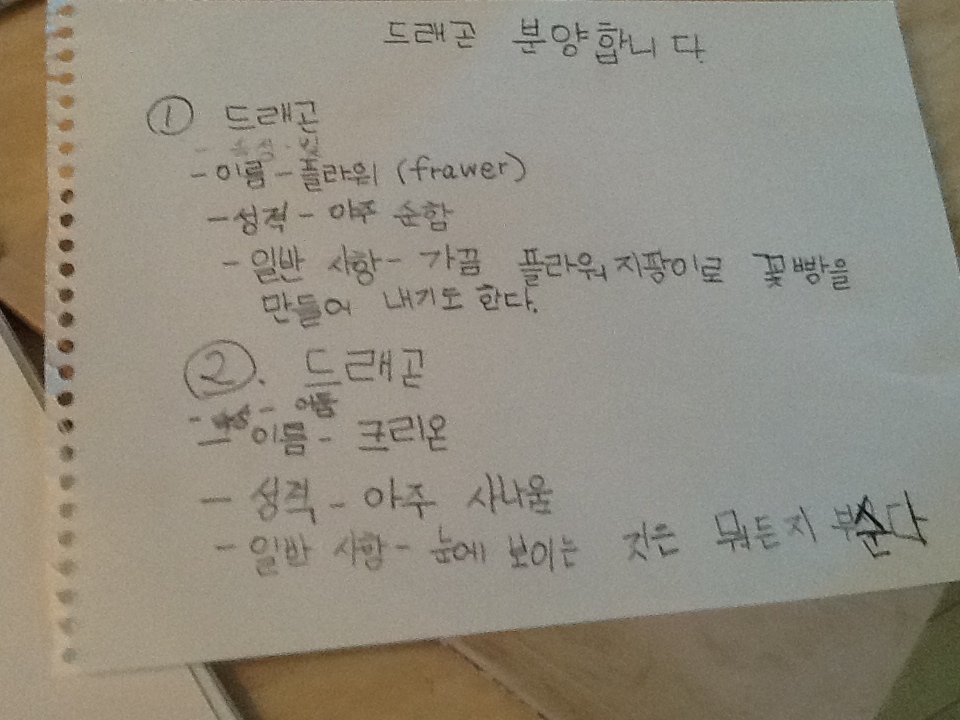 드래곤 분양합니다.
① 드래곤
- 속성 · 빛
- 이름 - 플라워 (frawer)
- 성격 - 아주 순함
- 일반 사항 - 가끔 플라워 지팡이로 꽃빵을
만들어 내기도 한다.
②. 드래곤
- 속성 - 어둠
- 이름 - 크리온
- 성격 - 아주 사나움
- 일반 사항 - 눈에 보이는 것은 뭐든지 부순다